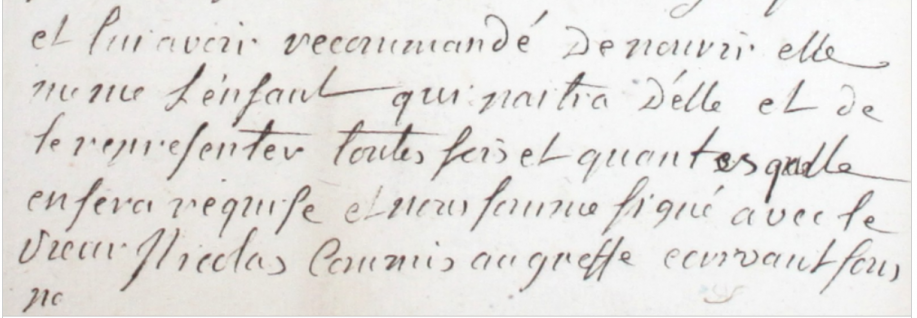 et lui avoir recommandé de nourir elle
meme L'enfant qui naitra d'elle et de
le representer toutes fois et quantes qu'elle
en sera requise et nous somme signé avec le
Sieur Nicolas Commis au greffe ecrivant sous
no